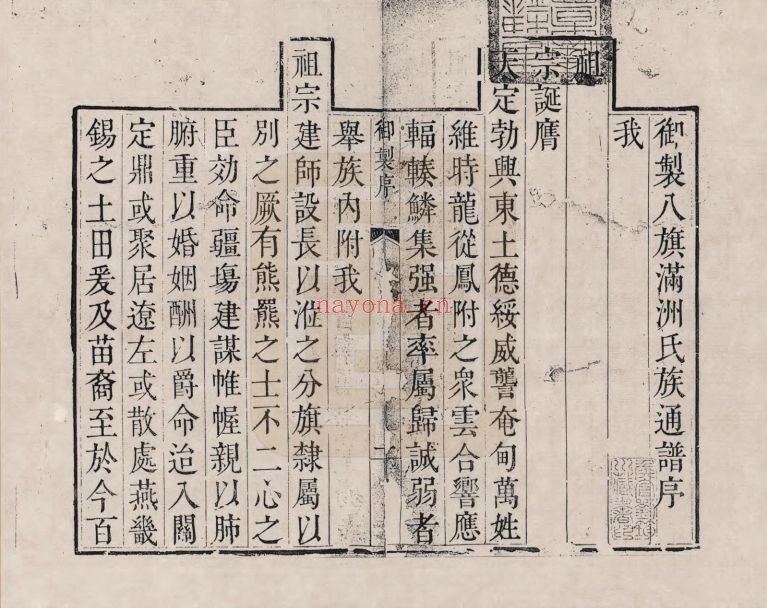 御製八旗滿洲氏族通譜序
我
祖
宗誕膺
天定勃興東土德綏威讋奄甸萬姓
維時龍從鳳附之衆雲合響應
輻輳鱗集强者率屬歸誠弱者
御製序
一
舉族內附我
祖宗建師設長以涖之分旗隸屬以
別之厥有熊羆之士不二心之
臣効命疆埸建謀帷幄親以肺
腑重以婚姻酬以爵命迨入關
定鼎或聚居遼左或散處燕畿
錫之土田爰及苗裔至於今百
nayona.cn